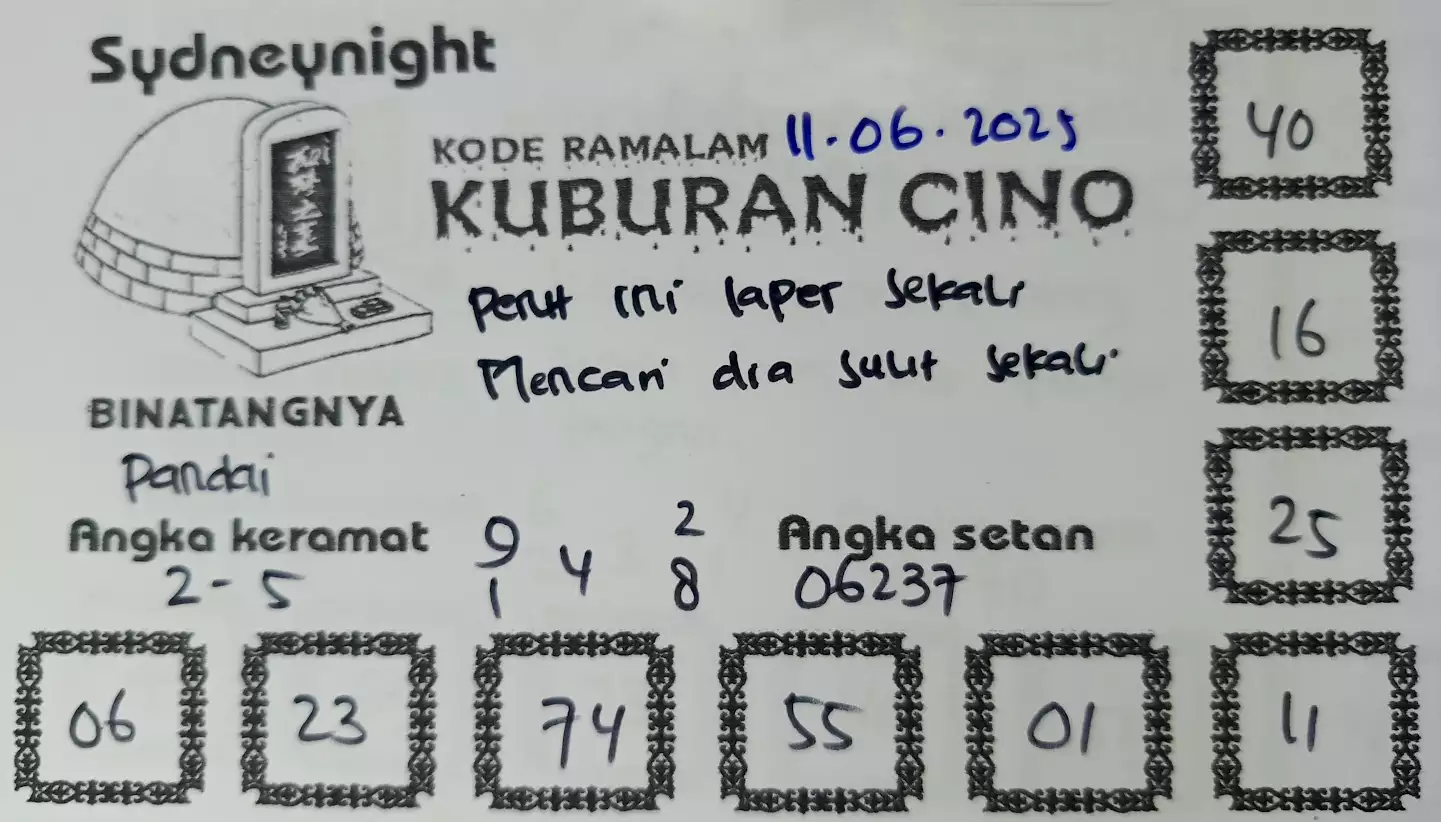 Sydneynight
KODE RAMALAM 11.06.2025
KUBURAN CINO
Perut ini laper sekali
Mencari dia sulit sekali
BINATANGNYA
Pandai
Angka keramat
2-5
9 2
4
1 8
Angka setan
06237
40
16
25
06 23 74 55 01 11